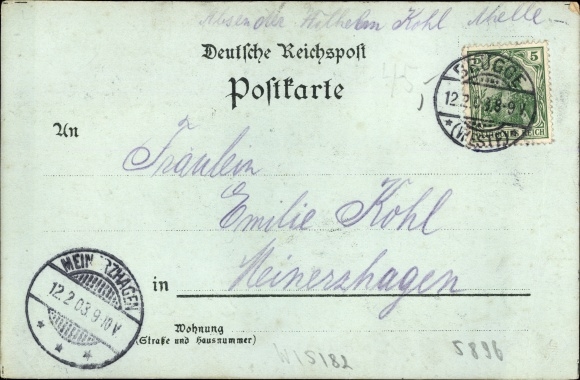 Absender Wilhelm Kohl
Deutsche Reichspost
Postkarte
45
5
REICH
BRÜGGE
12.2.03.8-9V.
(WESTF.)
An
Fräulein
Emilie Kohl
in Meinerzhagen
MEINERZHAGEN
12.2.03.9-10V.
Wohnung
(Straße und Hausnummer)
W15182
5896